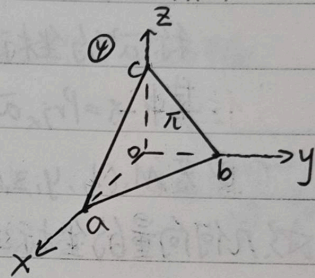 ④
z
c
π
o
b
y
a
x